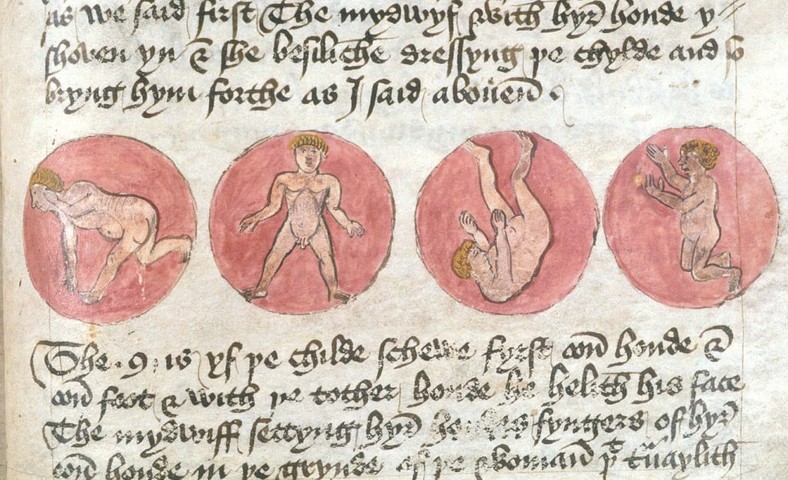 as we said first The mydwyf with hyr honde y
shoven yn & she besiliche dressyng þe chylde and so
bryng hym forthe as I said aboven .
The .9. is yf þe childe schewe fyrst oon honde &
oon foot & with þe tother honde he helith his face
The mydwiff settyng hyr fyngers of hyr
oon honde in þe grynde of þe woman þt tuaylith